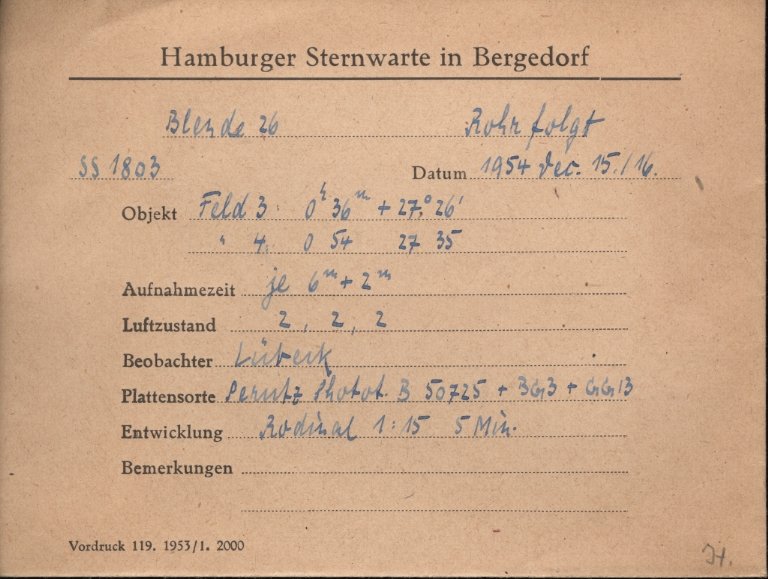 Hamburger Sternwarte in Bergedorf
Blende 26 Rohr folgt
SS 1803 Datum 1954 Dec. 15./16.
Objekt Feld 3. 0ʰ 36ᵐ + 27.° 26'
" 4. 0 54 27 35
Aufnahmezeit je 6ᵐ + 2ᵐ
Luftzustand 2, 2, 2
Beobachter Lübeck
Plattensorte Perutz Photot. B 50725 + BG3 + GG13
Entwicklung Rodinal 1:15 5 Min.
Bemerkungen
Vordruck 119. 1953/1. 2000